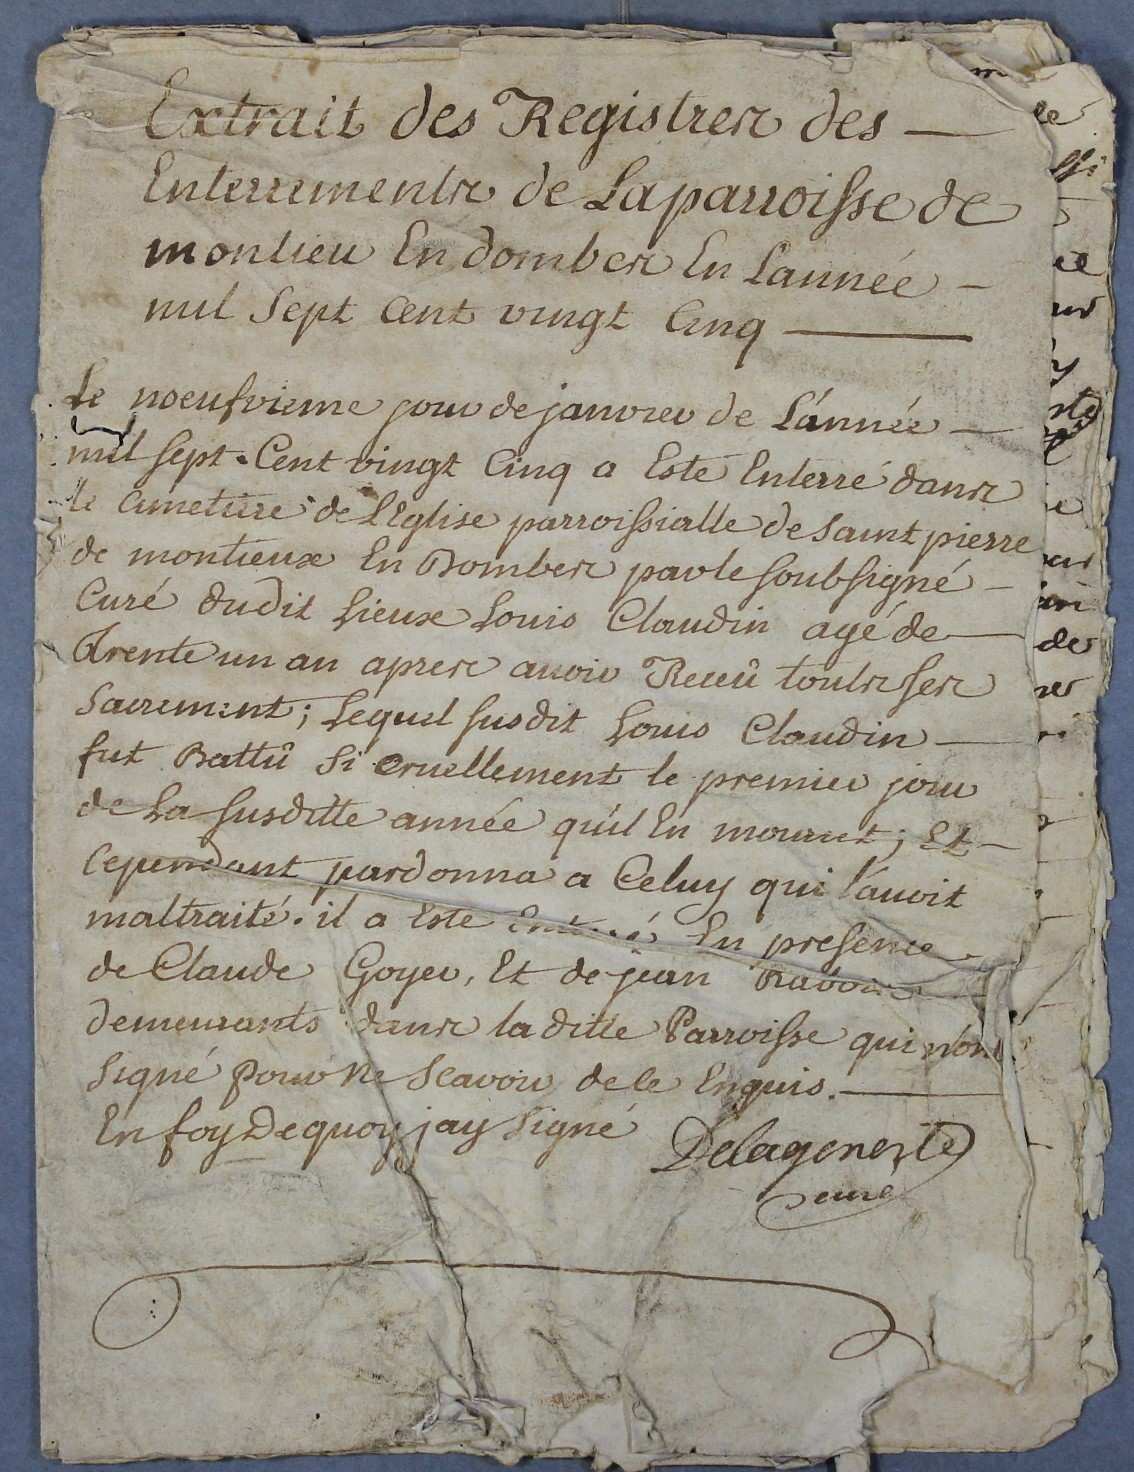 Extrait des Registres des
Enterrements de La parroisse de
montieu En dombes En L'année
mil Sept Cent vingt Cinq
Le noeufvieme jour de janvier de L'année
mil sept Cent vingt Cinq a Esté Enterré dans
le cimetiere de L'Eglise parroissialle de saint pierre
de montieux En Dombes par le soubsigné
Curé dudit Lieux Louis Claudin agé de
Trente un an apres avoir Receû touts ses
Sacrement; Lequel susdit Louis Claudin
fut Battû Si cruellement le premier jour
de La susditte année qu'il En mourut; Et
Cependant pardonna a Celuy qui l'avoit
maltraité. il a Esté Enterré En presence
de Claude Goyer, Et de jean
demeurants dans la ditte Parroisse qui n'ont
Signé pour Ne Scavoir de ce Enquis.
En foy De quoy jay Signé
Delageneste
curé